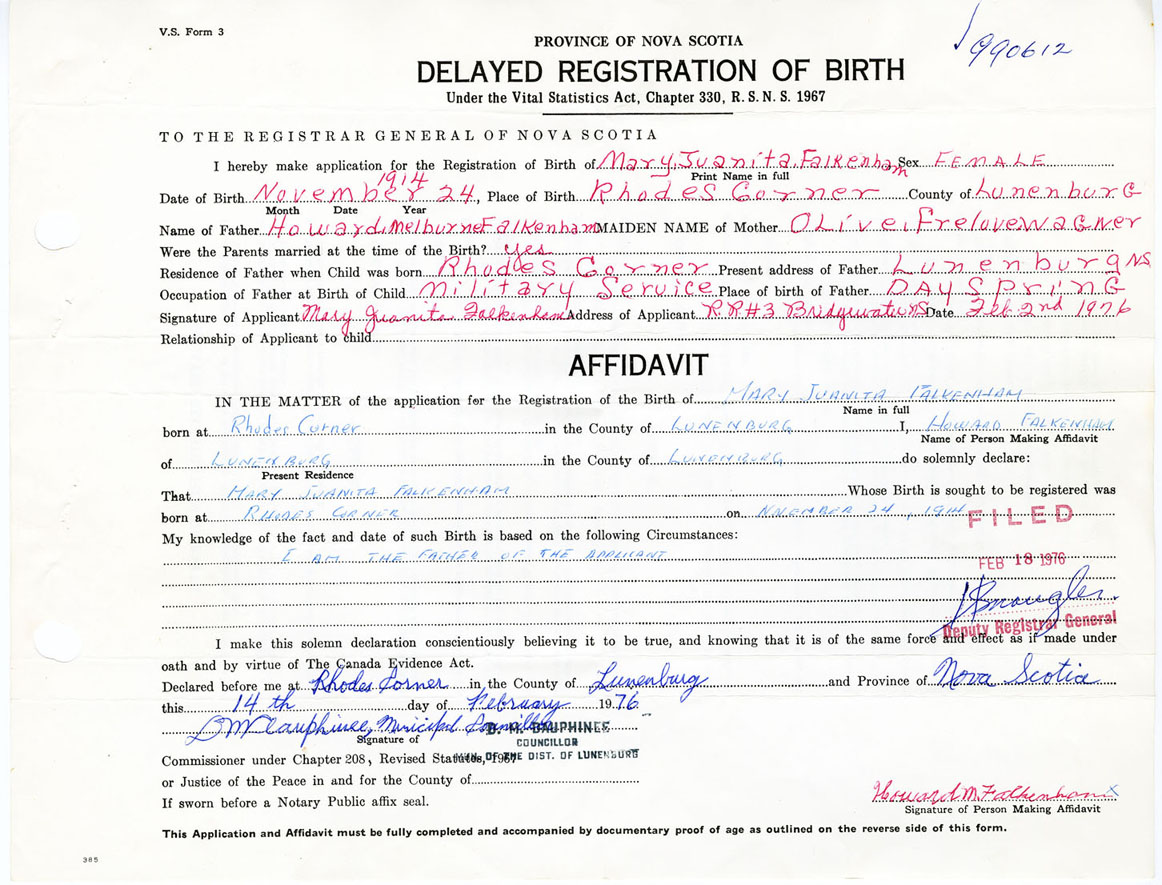 V.S. Form 3
990612
PROVINCE OF NOVA SCOTIA
DELAYED REGISTRATION OF BIRTH
Under the Vital Statistics Act, Chapter 330, R. S. N. S. 1967
TO THE REGISTRAR GENERAL OF NOVA SCOTIA
I hereby make application for the Registration of Birth of Mary, Juanita, Falkenham Sex FEMALE
Print Name in full
1914
Date of Birth November 24, Place of Birth Rhodes Corner County of Lunenburg
Month Date Year
Name of Father Howard, Melburne Falkenham MAIDEN NAME of Mother OLive, Frelove, WAGNer
Were the Parents married at the time of the Birth? yes
Residence of Father when Child was born Rhodes Corner Present address of Father Lunenburg NS
Occupation of Father at Birth of Child Military Service Place of birth of Father DAYSPRING
Signature of Applicant Mary Juanita Falkenham Address of Applicant R.R#3 Bridgewater NS Date Feb 2nd 1976
Relationship of Applicant to child
AFFIDAVIT
IN THE MATTER of the application for the Registration of the Birth of MARY JUANITA FALKENHAM
Name in full
born at Rhodes Corner in the County of LUNENBURG I, HOWARD FALKENHAM
Name of Person Making Affidavit
of LUNENBURG in the County of LUNENBURG do solemnly declare:
Present Residence
That MARY JUANITA FALKENHAM Whose Birth is sought to be registered was
born at RHODES CORNER on NOVEMBER 24, 1914
FILED
My knowledge of the fact and date of such Birth is based on the following Circumstances:
I AM THE FATHER OF THE APPLICANT
FEB 18 1976
Deputy Registrar General
I make this solemn declaration conscientiously believing it to be true, and knowing that it is of the same force and effect as if made under
oath and by virtue of The Canada Evidence Act.
Declared before me at Rhodes Corner in the County of Lunenburg and Province of Nova Scotia
this 14th day of February 1976
D M Dauphinee, Municipal Councillor D. M. DAUPHINEE
Signature of COUNCILLOR
Commissioner under Chapter 208, Revised Statutes, 1967 MUN. OF THE DIST. OF LUNENBURG
or Justice of the Peace in and for the County of
If sworn before a Notary Public affix seal.
Howard M Falkenham x
Signature of Person Making Affidavit
This Application and Affidavit must be fully completed and accompanied by documentary proof of age as outlined on the reverse side of this form.
385